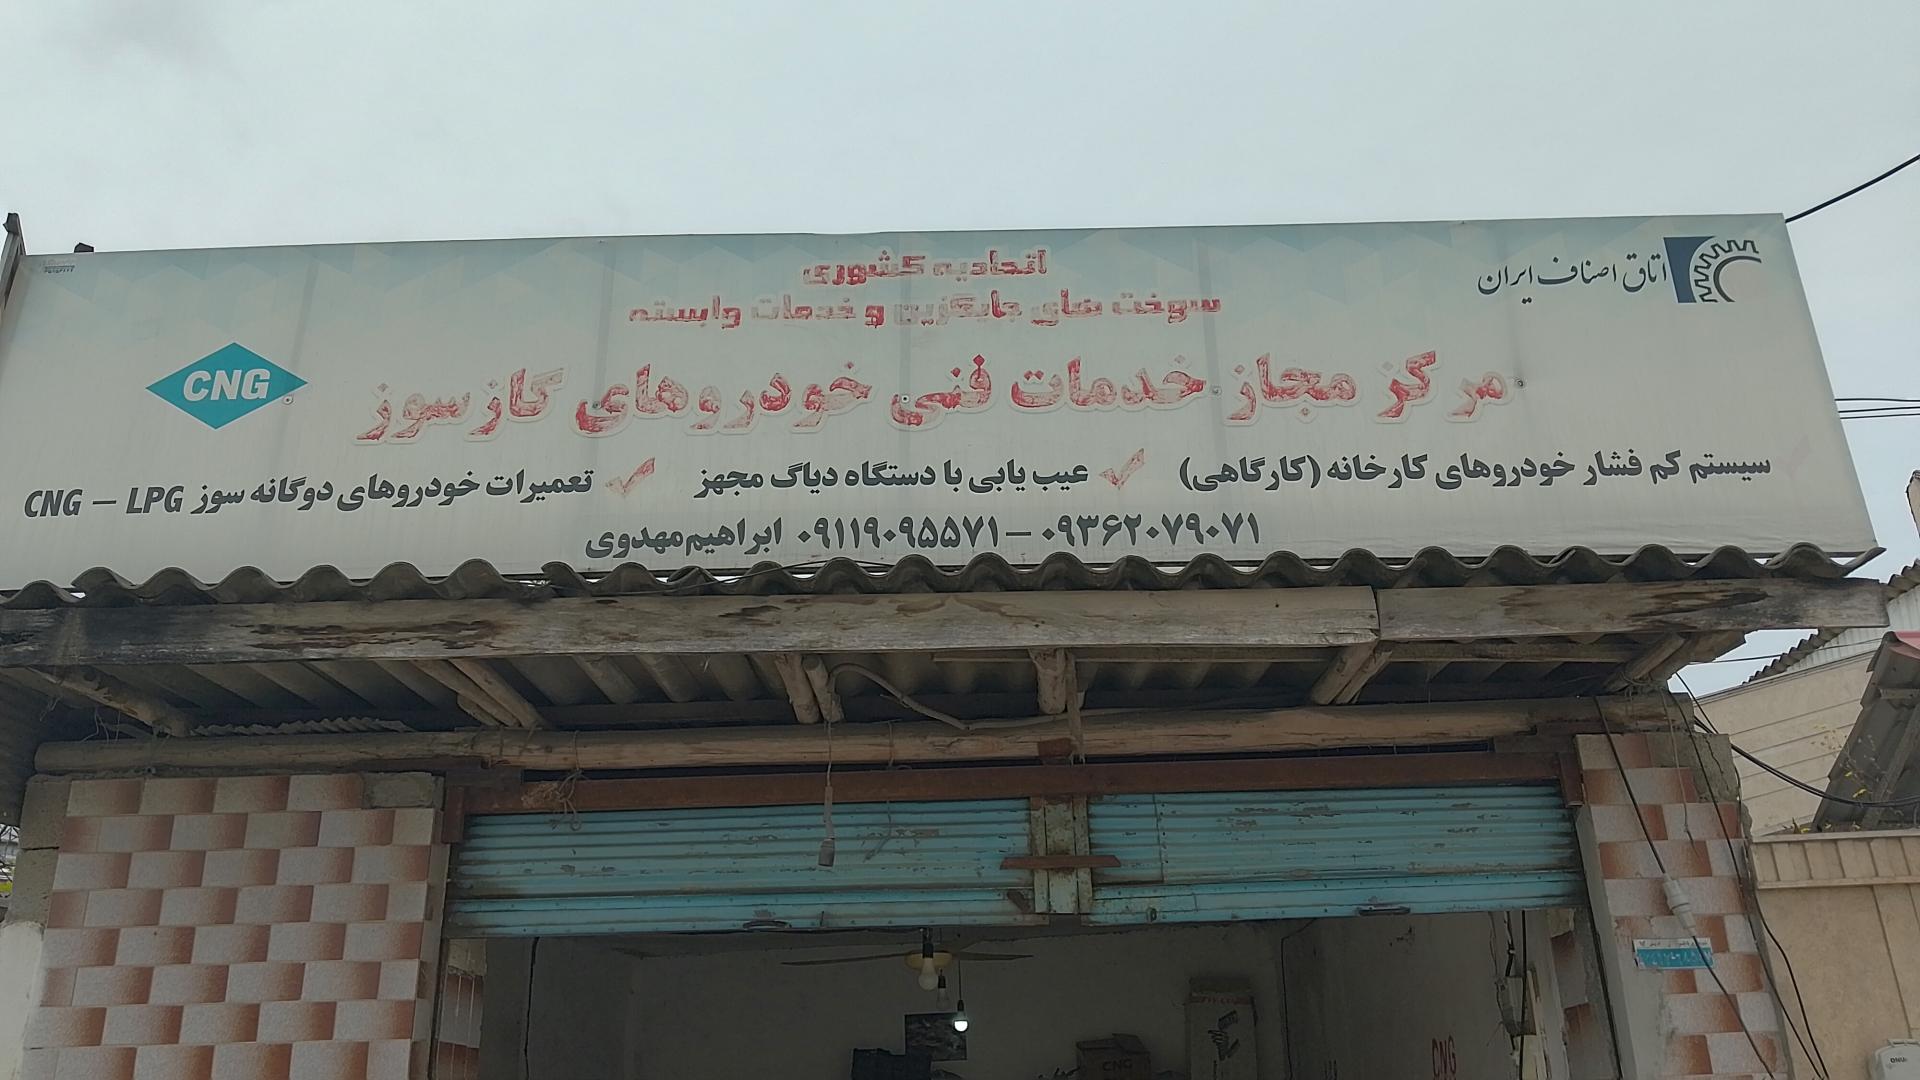 اتاق اصناف ایران
اتحادیه کشوری
سوخت های جایگزین و خدمات وابسته
مرکز مجاز خدمات فنی خودروهای گازسوز
CNG
سیستم کم فشار خودروهای کارخانه (کارگاهی) عیب یابی با دستگاه دیاگ مجهز تعمیرات خودروهای دوگانه سوز CNG – LPG
۰۹۳۶۲۰۷۹۰۷۱ – ۰۹۱۱۹۰۹۵۵۷۱ ابراهیم مهدوی
CNG
CNG